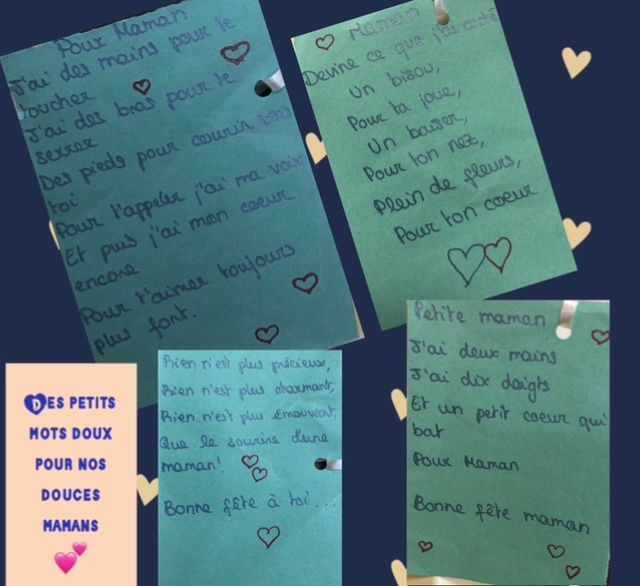 Pour Maman
J'ai des mains pour te
toucher
J'ai des bras pour te
serrer
Des pieds pour courrir vers
toi
Pour t'appeler j'ai ma voix
Et puis j'ai mon coeur
encore
Pour t'aimer toujours
plus fort.
Maman
Devine ce que j'ai
Un bisou,
Pour ta joue,
Un baiser,
Pour ton nez,
Plein de fleurs,
Pour ton coeur
Des petits
mots doux
pour nos
douces
mamans
Rien n'est plus précieux,
Rien n'est plus charmant,
Rien n'est plus émouvant,
Que le sourire d'une
maman!
Bonne fête à toi...
Petite maman
J'ai deux mains
J'ai dix doigts
Et un petit coeur qui
bat
Pour Maman
Bonne fête maman